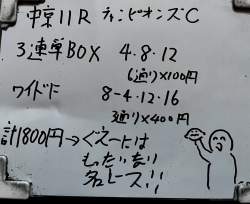 中京11R チャンピオンズC
3連単BOX 4.8.12
6通り×100円
ワイド 8-4.12.16
3通り×400円
計1800円→ぐえーには
もったいない
名レース!!